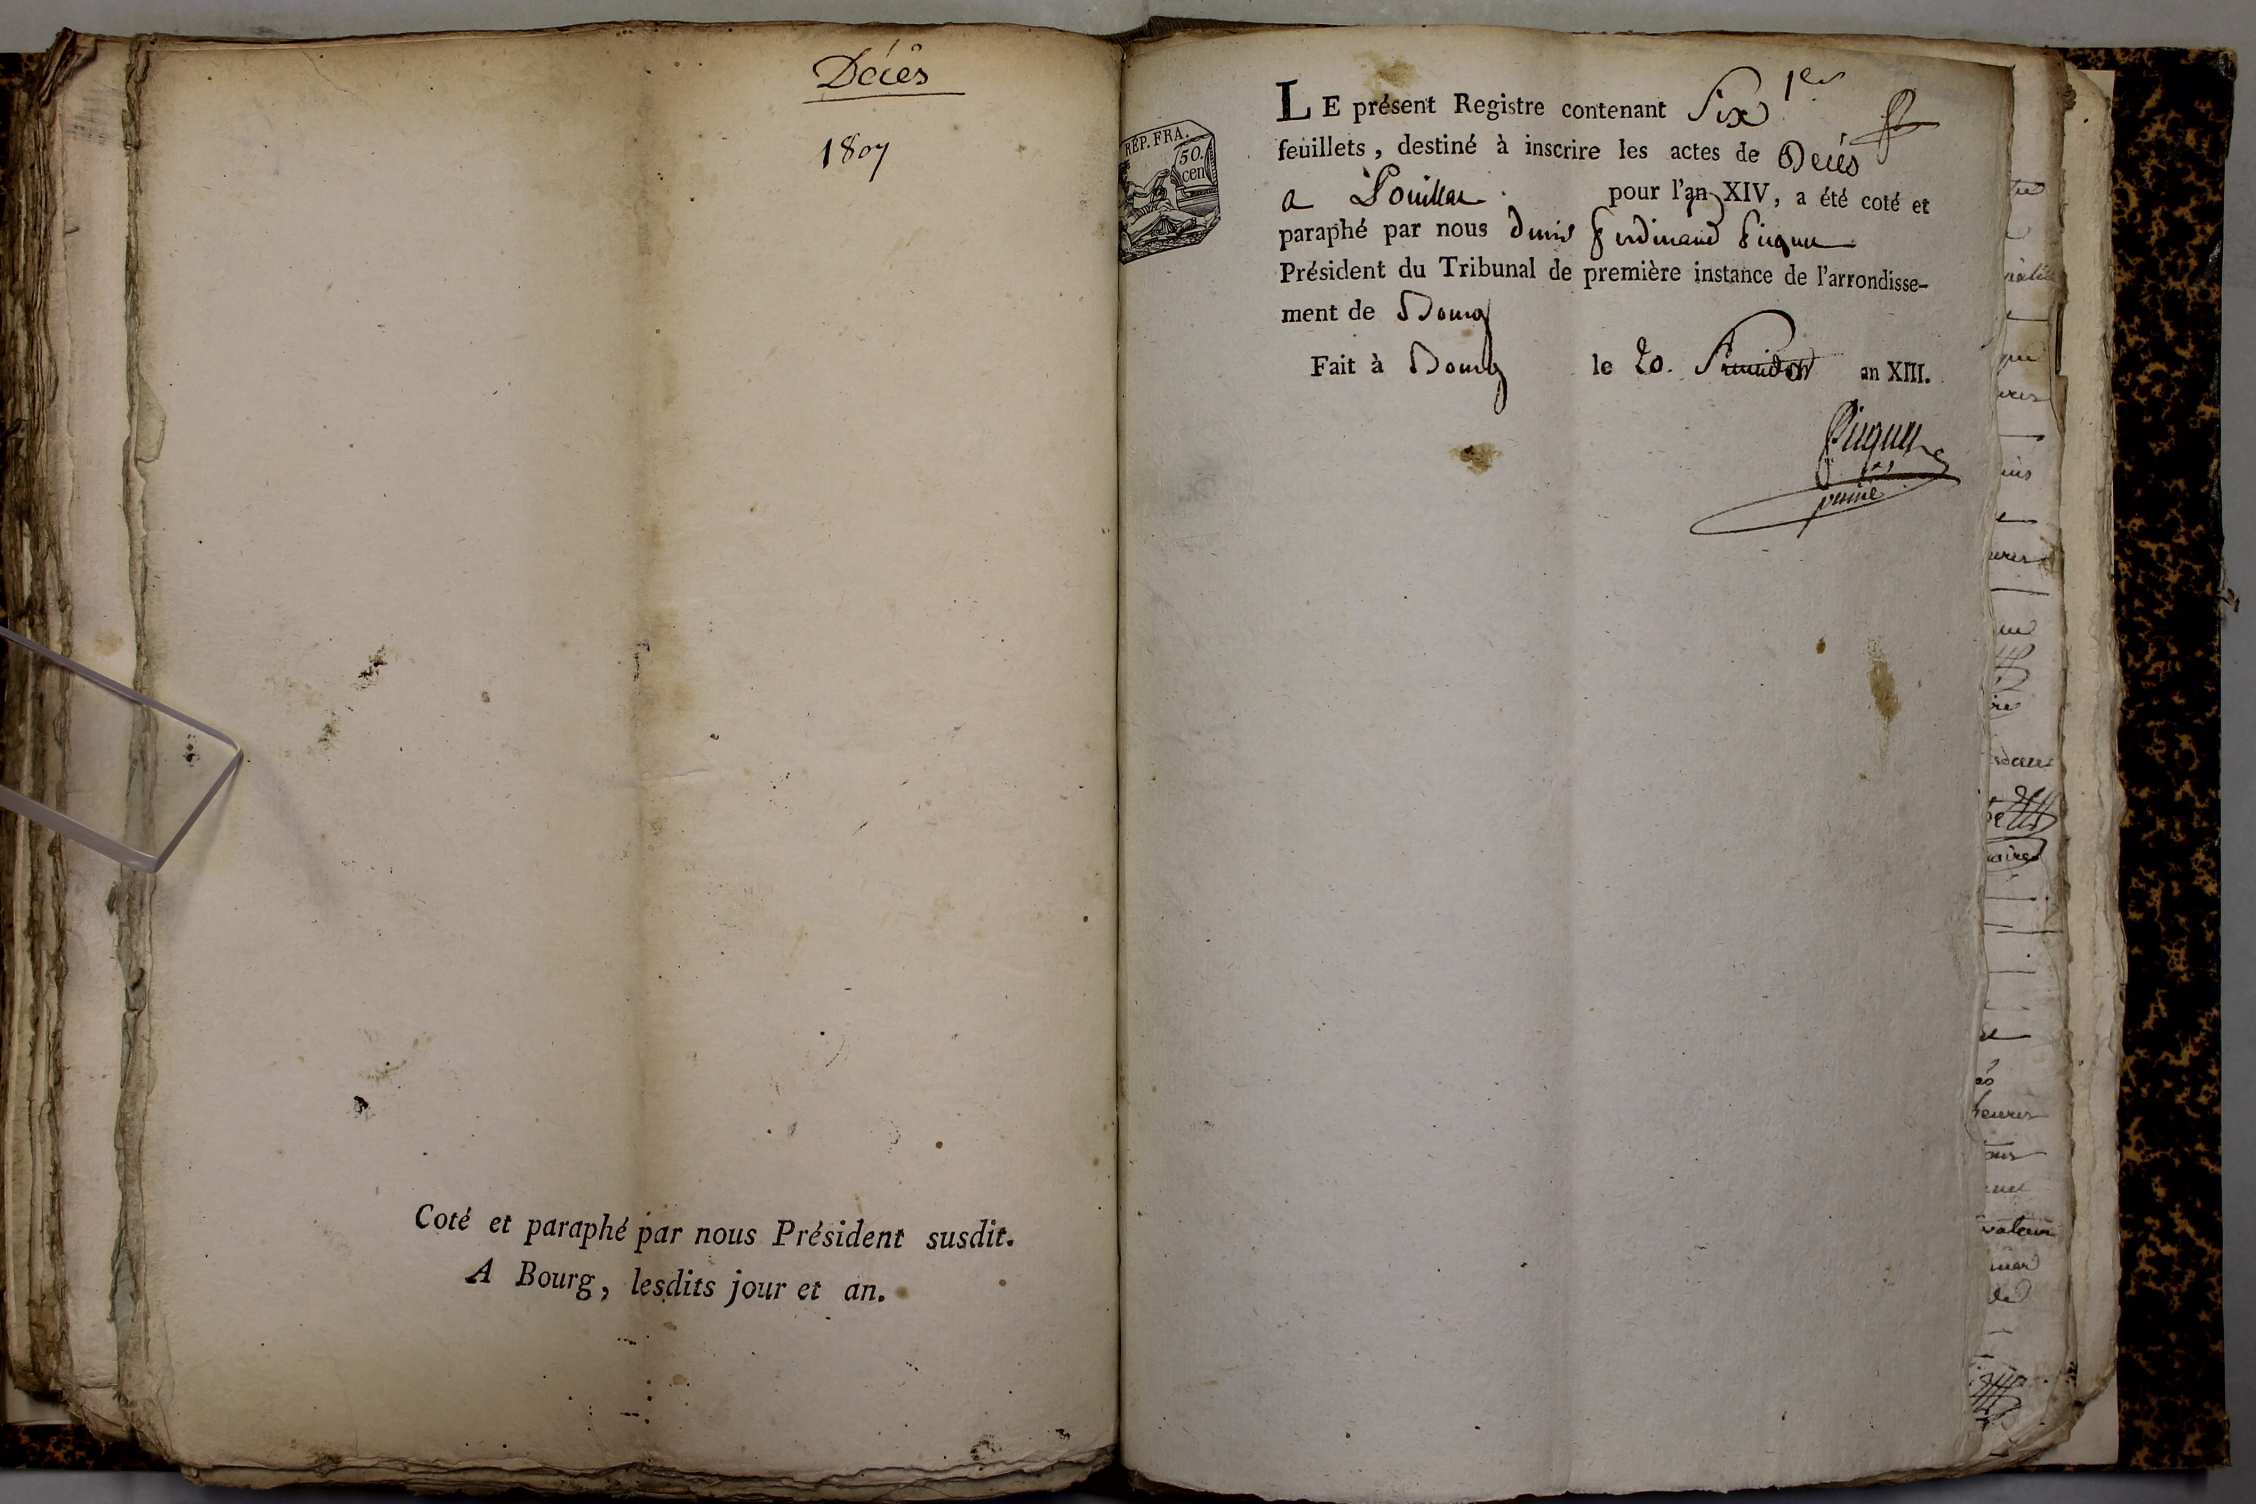 Décès
1807
Coté et paraphé par nous Président susdit.
A Bourg, lesdits jour et an.
1er
RÉP. FRA.
50.
cen
LE présent Registre contenant Six
feuillets, destiné à inscrire les actes de Décès
a pour l'an XIV, a été coté et
paraphé par nous denis ferdinand Picquet
Président du Tribunal de première instance de l'arrondisse-
ment de Bourg
Fait à Bourg le 20. fructidor an XIII.
Picquet